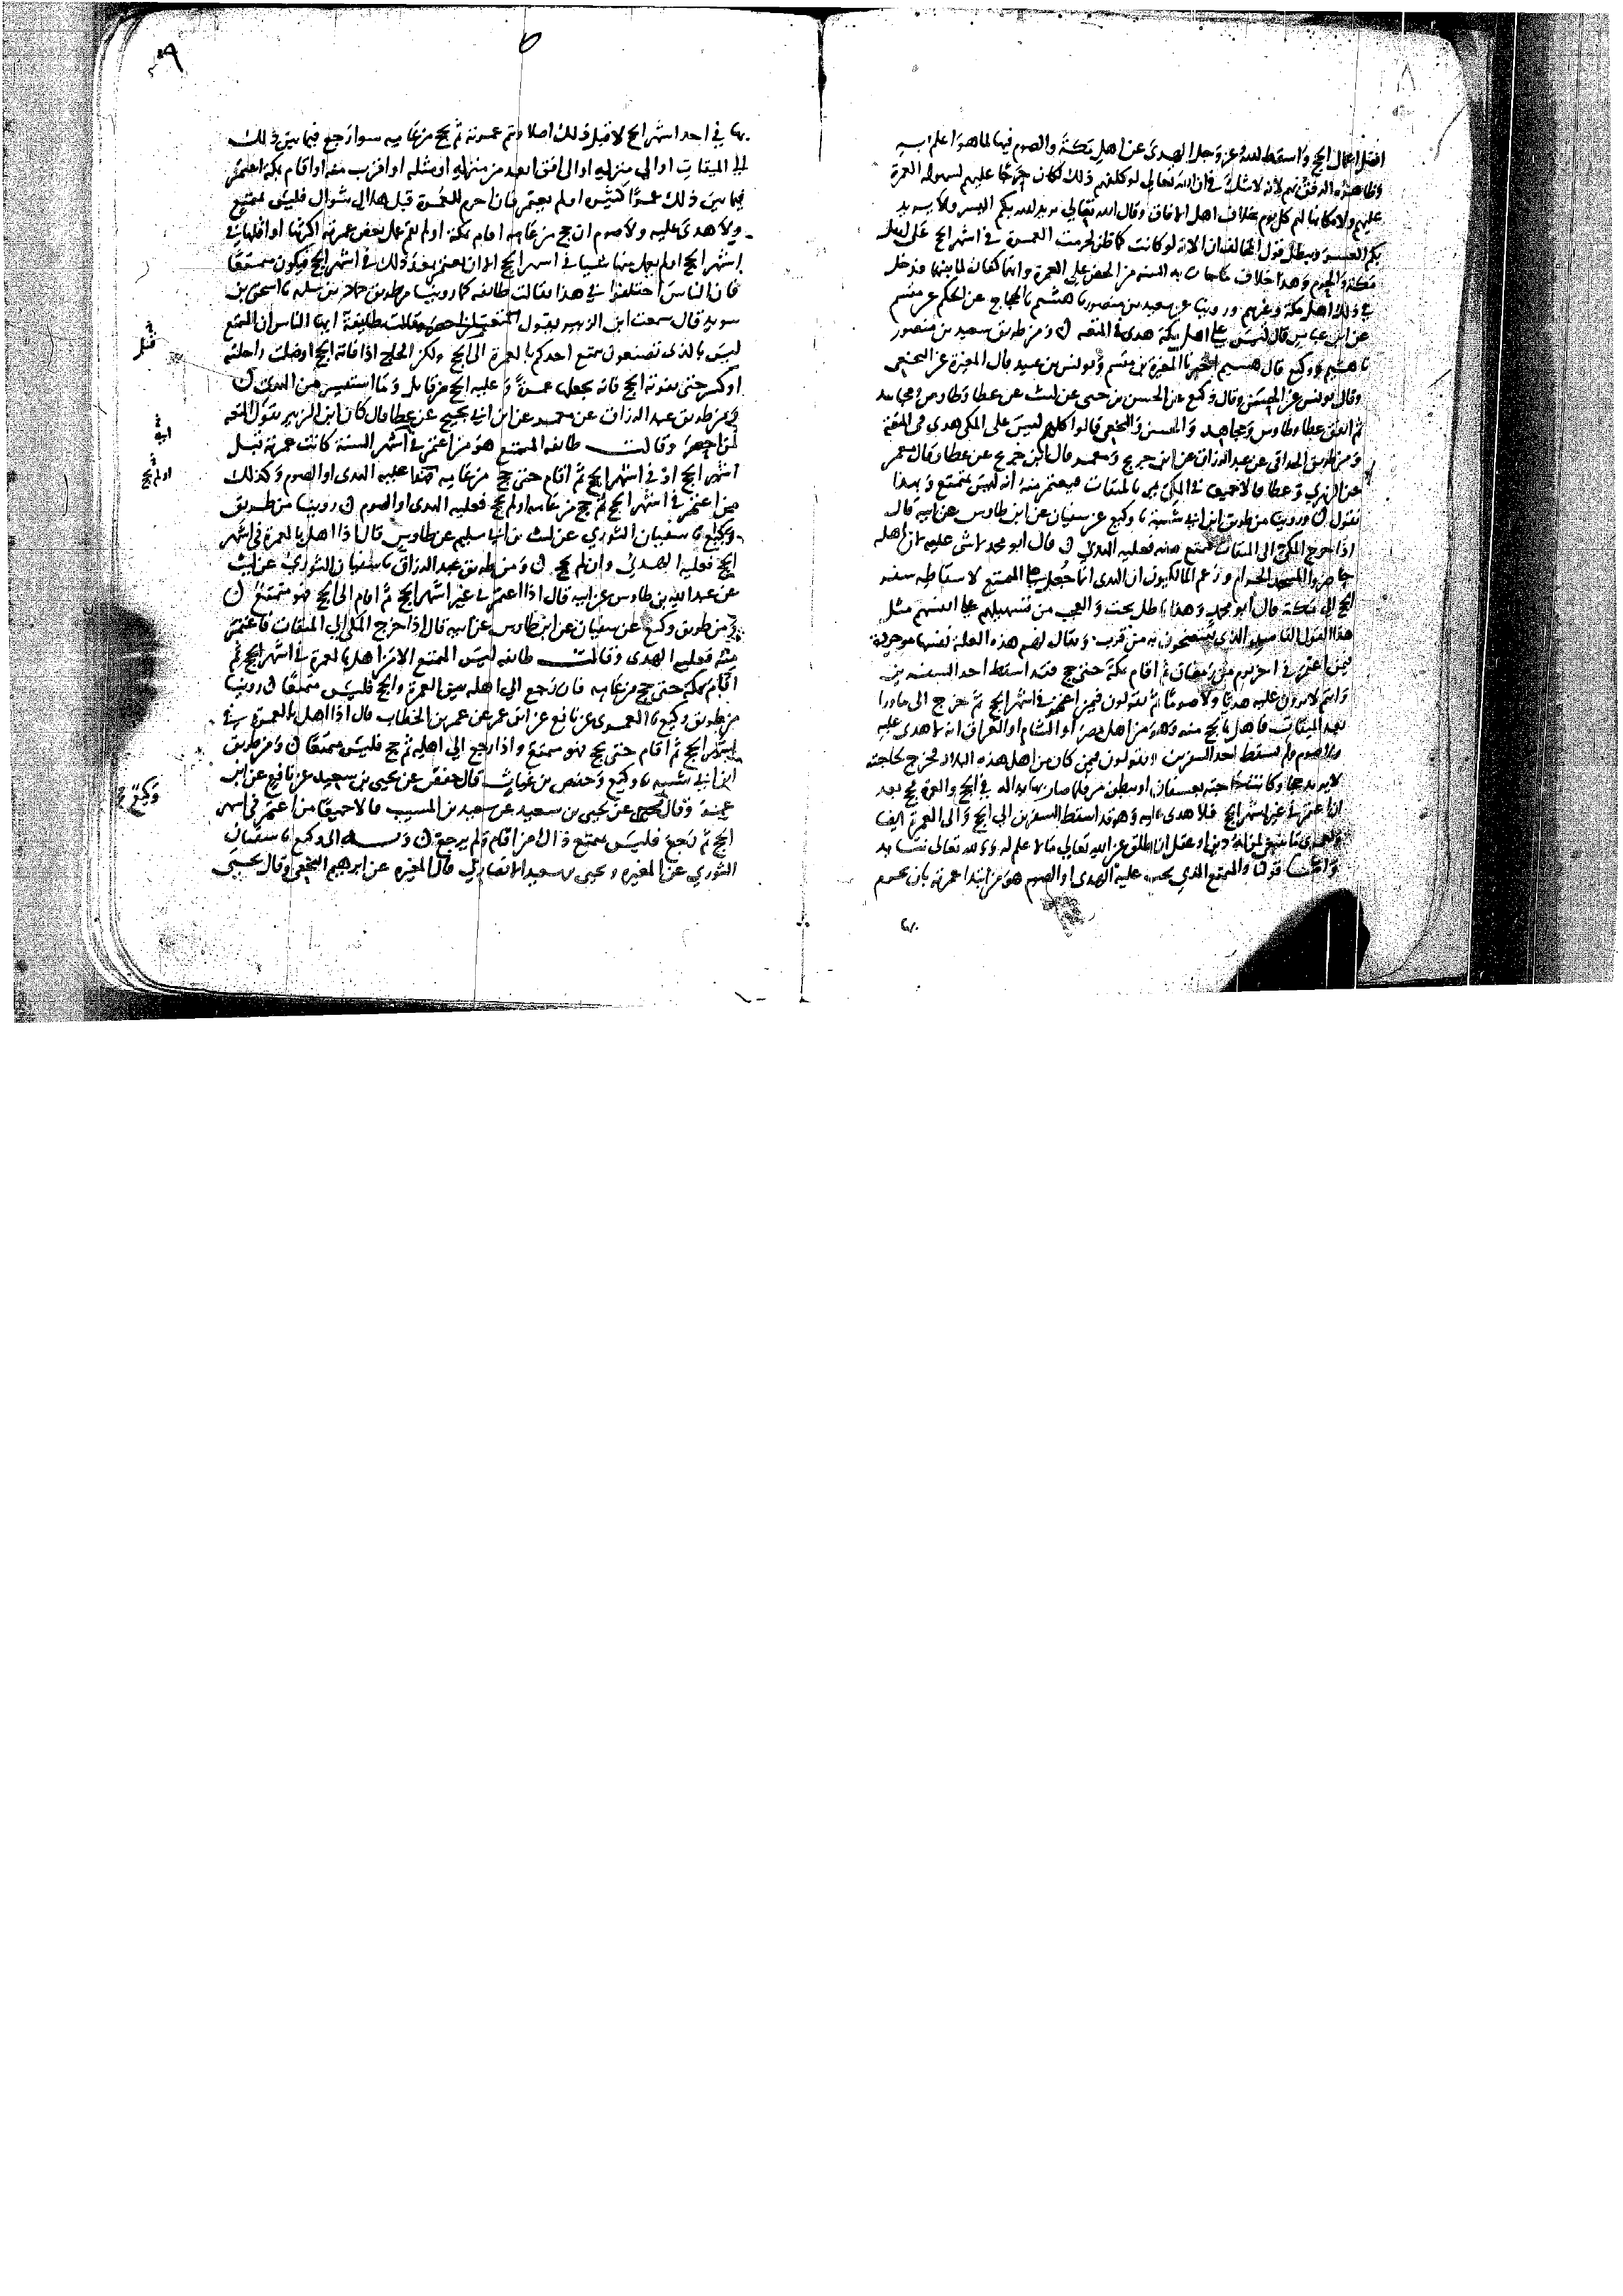 افضل اعمال الحج واسقط الله عز وجل الهدى عن اهل مكة والصوم فيها لما هو اعلم به
لانه لا شك في ان الله تعالى لو كلفهم ذلك لكان حرجا عليهم لسهولة العمرة
عليهم ولامكانها لهم كل يوم بخلاف اهل الافاق وقال الله تعالى يريد الله بكم اليسر ولا يريد
بكم العسر ويبطل قول المخالف ان الاية لو كانت كما ظن لحرمت العمرة في اشهر الحج على اهل
مكة والحرم وهذا خلاف ما جات به السنة من الحض على العمرة وانها كفارة لما بينها فدخل
في ذلك اهل مكة وغيرهم وروينا عن سعيد بن منصور نا هشيم نا الحجاج عن الحكم عن مقسم
عن ابن عباس قال ليس على اهل مكة هدى في المتعة ومن طريق سعيد بن منصور
نا هشيم ووكيع قال هشيم اخبرنا المغيرة بن مقسم ويونس بن عبيد قال المغيرة عن النخعي
وقال يونس عن الحسن وقال وكيع عن الحسن بن حي عن ليث عن عطا وطاوس ومجاهد
ثم اتفق عطا وطاوس ومجاهد والحسن والنخعي قالوا كلهم ليس على المكي هدى في المتعة
ومن طريق عن عبد الرزاق عن ابن جريج ومعمر قال ابن جريج عن عطا وقال معمر
عن الزهري وعطا قالا جميعا في المكي يمر بالميقات فيعتمر منه انه ليس بمتمتع وبهذا
نقول وروينا من طريق ابن ابي شيبة نا وكيع عن سفيان عن ابن طاوس عن ابيه قال
اذا خرج المكي الى الميقات فتمتع منه فعليه الهدي قال ابو محمد لا شي عليه لان اهله
حاضروا المسجد الحرام وزعم المالكيون ان الهدى انما جعل على المتمتع لاسقاطه سفر
الحج الى مكة قال ابو محمد وهذا باطل بحت والعجب من تسهيلهم على انفسهم مثل
هذا القول الفاسد الذي يفتضحون به من قرب ويقال لهم هذه العلة نفسها موجودة
فيمن اعتمر في اخر يوم من رمضان ثم اقام بمكة حتى حج فقد اسقط احد السفرين
وانتم لا ترون عليه هديا ولا صوما ثم تقولون فيمن اعتمر في اشهر الحج ثم خرج الى ما ورا
بعد الميقات فاهل بالحج منه وهو من اهل مصر او الشام او العراق انه لا هدى عليه
ولا صوم ولم يسقط احد السفرين وتقولون فيمن كان من اهل هذه البلاد فخرج لحاجة
لا يريد حجا وكانت حاجته بعسفان او ببطن مر فلما صار بها بدا له في الحج والعمرة فحج بعد
ان اعتمر في غير اشهر الحج فلا هدى عليه وهو قد اسقط السفرين الى الحج والى العمرة ايضا
ولعمري ما ينبغي لمن له دين او عقل ان يطلق عن الله تعالى ما لا علم له به
واما قولنا والمتمتع الذي يجب عليه الهدى او الصوم هو من ابتدا عمرته بان يحرم
بها
بها في احد اشهر الحج لا قبل ذلك اصلا ويتم عمرته ثم يحج من عامه سوا رجع فيما بين ذلك
الى الميقات او الى منزله او الى افق ابعد من منزله او مثله او اقرب منه او اقام بمكة اعتمر
فيما بين ذلك عمرا كثيرة او لم يعتمر فان احرم للعمرة قبل هلال شوال فليس بمتمتع
ولا هدى عليه ولا صوم ان حج من عامه اقام بمكة او لم يقم عمل بعض عمرته اكثرها او اقلها في
اشهر الحج او لم يعمل منها شيا في اشهر الحج الا ان يعتمر بعد ذلك في اشهر الحج فيكون متمتعا
فان الناس اختلفوا في هذا فقالت طائفة كما روينا من طريق حماد بن سلمة نا اسحق بن
سويد قال سمعت ابن الزبير يقول ايها الناس ان التمتع
ليس بالذى تصنعون يتمتع احدكم بالعمرة الى الحج ولكن الحاج اذا فاته الحج او ضلت راحلته
او كسر حتى يفوته الحج فانه يجعلها عمرة وعليه الحج من قابل وما استيسر من الهدى
ومن طريق عبد الرزاق عن معمر عن ابن ابي نجيح عن عطا قال كان ابن الزبير يقول المتعة
لمن احصر وقالت طائفة المتمتع هو من اعتمر في اشهر السنة كانت عمرته قبل
اشهر الحج او في اشهر الحج ثم اقام حتى حج من عامه عليه الهدى او الصوم وكذلك
من اعتمر في اشهر الحج ثم حج من عامه او لم يحج فعليه الهدى او الصوم روينا من طريق
وكيع نا سفيان الثوري عن ليث بن ابي سليم عن طاوس قال اذا اهل بالعمرة في اشهر
الحج فعليه الهدى وان لم يحج ومن طريق عبد الرزاق نا سفيان الثوري عن ليث
عن عبد الله بن طاوس عن ابيه قال اذا اعتمر في غير اشهر الحج ثم اقام الى الحج فهو متمتع
ومن طريق وكيع عن سفيان عن ابن طاوس عن ابيه قال اذا خرج المكي الى الميقات فاعتمر
منه فعليه الهدى وقالت طائفة ليس المتمتع الا من اهل بالعمرة في اشهر الحج ثم
اقام بمكة حتى حج من عامه فان رجع الى اهله بين العمرة والحج فليس متمتعا روينا
من طريق وكيع نا العمرى عن نافع عن ابن عمر عن عمر بن الخطاب قال اذا اهل بالعمرة في
اشهر الحج ثم اقام حتى يحج فهو متمتع واذا رجع الى اهله ثم حج فليس متمتعا ومن طريق
ابن ابي شيبة نا وكيع وحفص بن غياث قال حفص عن يحيى بن سعيد عن نافع عن ابن
عمر وقال عن يحيى بن سعيد عن سعيد بن المسيب قالا جميعا من اعتمر في اشهر
الحج ثم رجع فليس بمتمتع ذاك من اقام ولم يرجع الى وكيع نا سفيان
الثوري عن المغيرة ويحيى بن سعيد الانصاري قال المغيره عن ابرهيم النخعي وقال يحيى
قبل
او لم يحج
وكيع